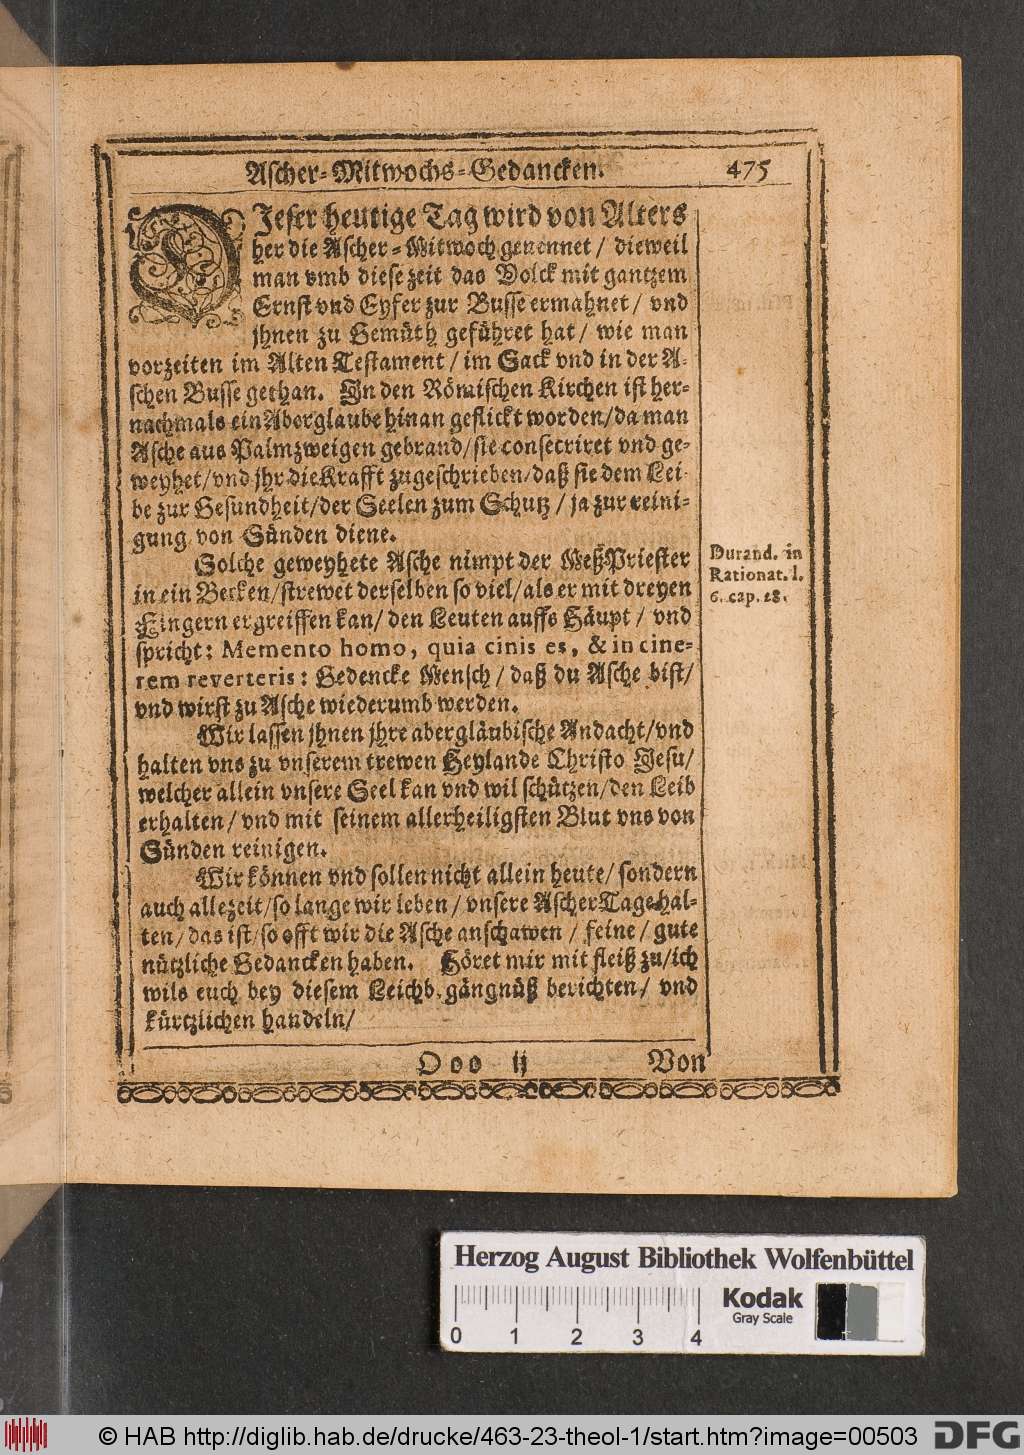 Ascher-Mitwochs-Gedancken. 475
DJeser heutige Tag wird von Alters
her die Ascher-Mitwoch genennet / dieweil
man vmb diese zeit das Volck mit gantzem
Ernst vnd Eyfer zur Busse ermahnet / vnd
jhnen zu Gemüth geführet hat / wie man
vorzeiten im Alten Testament / im Sack vnd in der A-
schen Busse gethan. In den Römischen Kirchen ist her-
nachmals ein Aberglaube hinan geflickt worden / da man
Asche aus Palmzweigen gebrand / sie consecriret vnd ge-
weyhet / vnd jhr die Krafft zugeschrieben / daß sie dem Lei-
be zur Gesundheit / der Seelen zum Schutz / ja zur reini-
gung von Sünden diene.
Solche geweyhete Asche nimpt der MeßPriester
in ein Becken / strewet derselben so viel / als er mit dreyen
Fingern ergreiffen kan / den Leuten auffs Häupt / vnd
spricht: Memento homo, quia cinis es, & in cine-
rem reverteris: Gedencke Mensch / daß du Asche bist /
vnd wirst zu Asche wiederumb werden.
Durand. in
Rationat. l.
6. cap. 28.
Wir lassen jhnen jhre abergläubische Andacht / vnd
halten vns zu vnserem trewen Heylande Christo Jesu /
welcher allein vnsere Seel kan vnd wil schützen / den Leib
erhalten / vnd mit seinem allerheiligsten Blut vns von
Sünden reinigen.
Wir können vnd sollen nicht allein heute / sondern
auch allezeit / so lange wir leben / vnsere AscherTage hal-
ten / das ist / so offt wir die Asche anschawen / feine / gute
nützliche Gedancken haben. Höret mir mit fleiß zu / ich
wils euch bey diesem Leichbegängnüß berichten / vnd
kürtzlichen handeln /
Ooo ij Von
Herzog August Bibliothek Wolfenbüttel
0 1 2 3 4
Kodak
Gray Scale
© HAB http://diglib.hab.de/drucke/463-23-theol-1/start.htm?image=00503
DFG